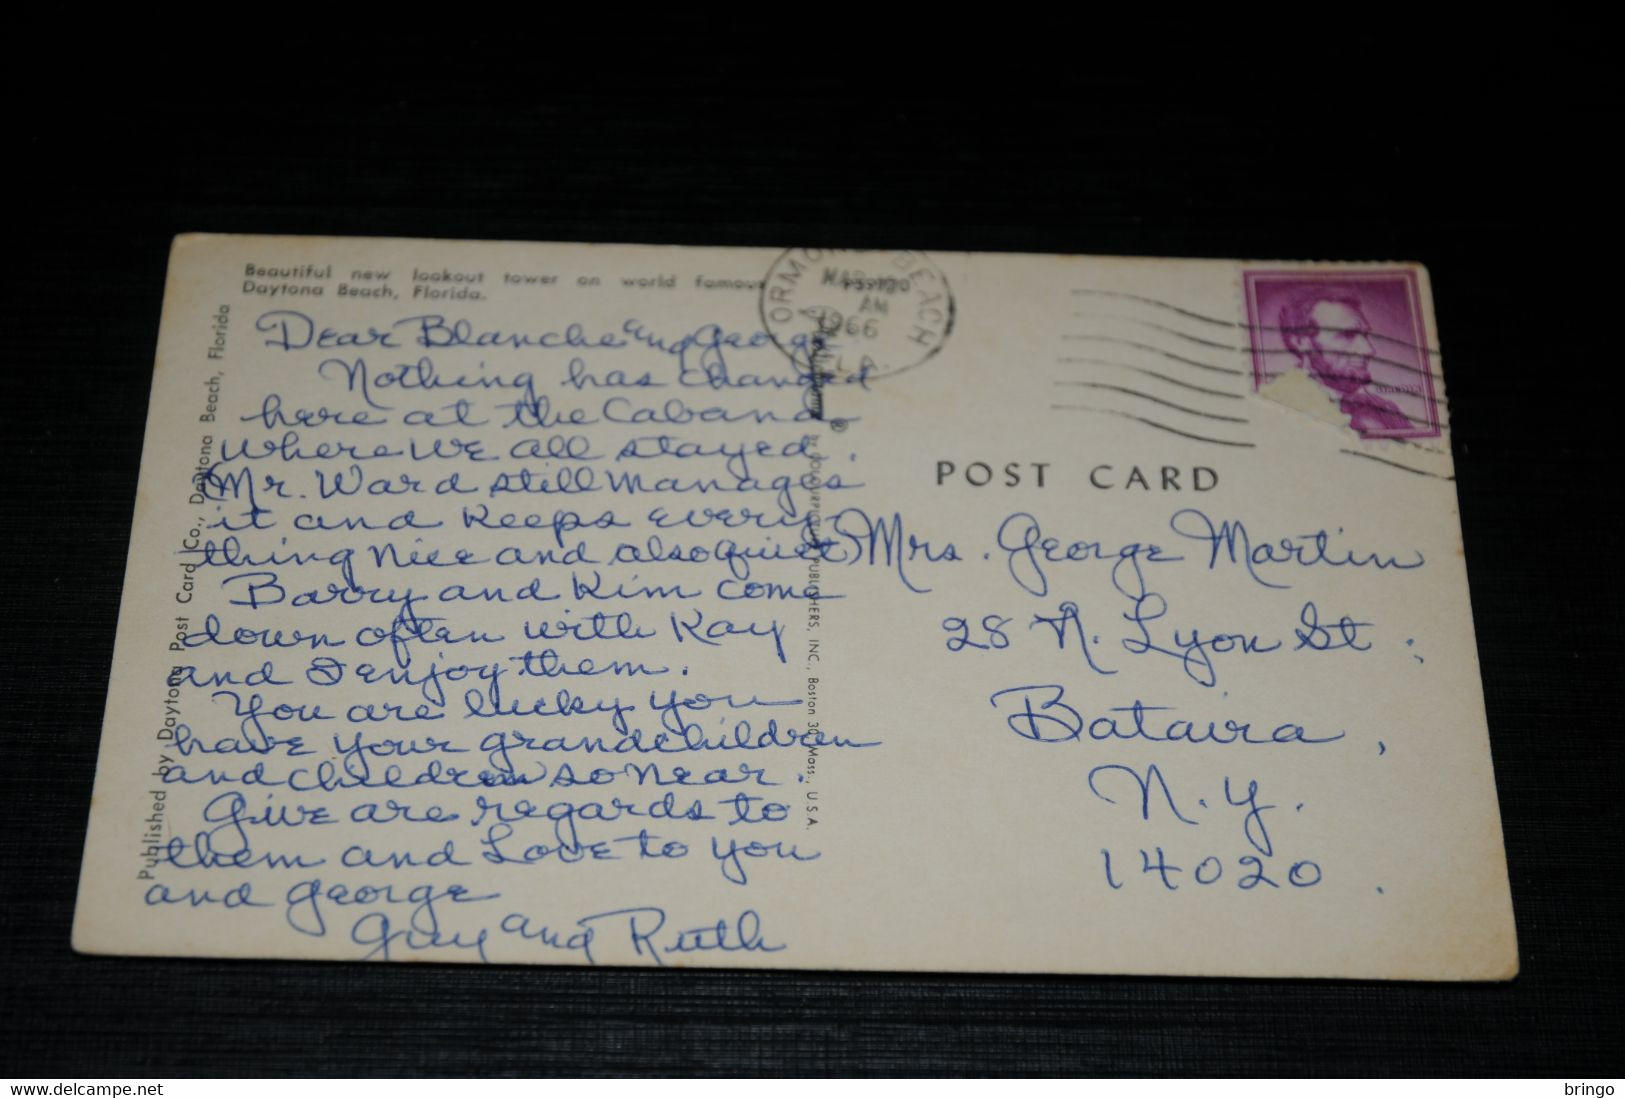 Beautiful new lookout tower on world famous
Daytona Beach, Florida.
Dear Blanche and George
Nothing has changed
here at the Cabana
where we all stayed.
(Mr. Ward still manages
it and keeps every
thing nice and also quiet)
Barry and Kim come
down often with Kay
and I enjoy them.
You are lucky you
have your grandchildren
and children so near.
Give are regards to
them and Love to you
and George
Guy and Ruth
Published by Daytona Post Card Co., Daytona Beach, Florida
PUBLISHERS, INC., Boston 30, Mass., U.S.A.
ORMOND BEACH
MAR
AM
1966
FLA.
LINCOLN
POST CARD
Mrs. George Martin
28 N. Lyon St.
Bataira,
N.Y.
14020.
delcampe.net
bringo